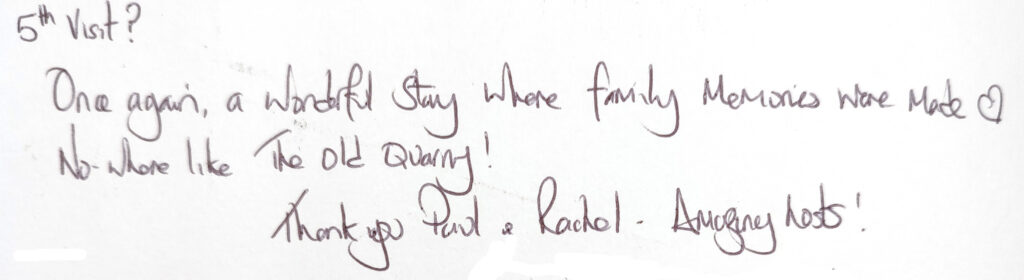 5th Visit?
Once again, a wonderful stay where family memories were made ♡
No-where like The Old Quarry!
Thank you Paul & Rachel - Amazing hosts!